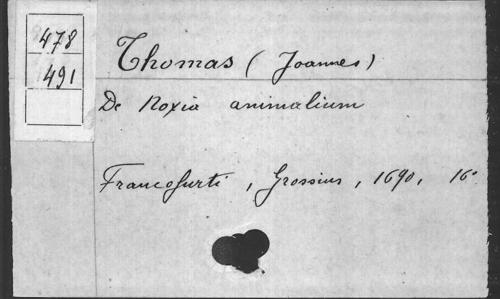 478
491
Thomas (Joannes)
De Noxia animalium
Francofurti, Grossius, 1690, 16°